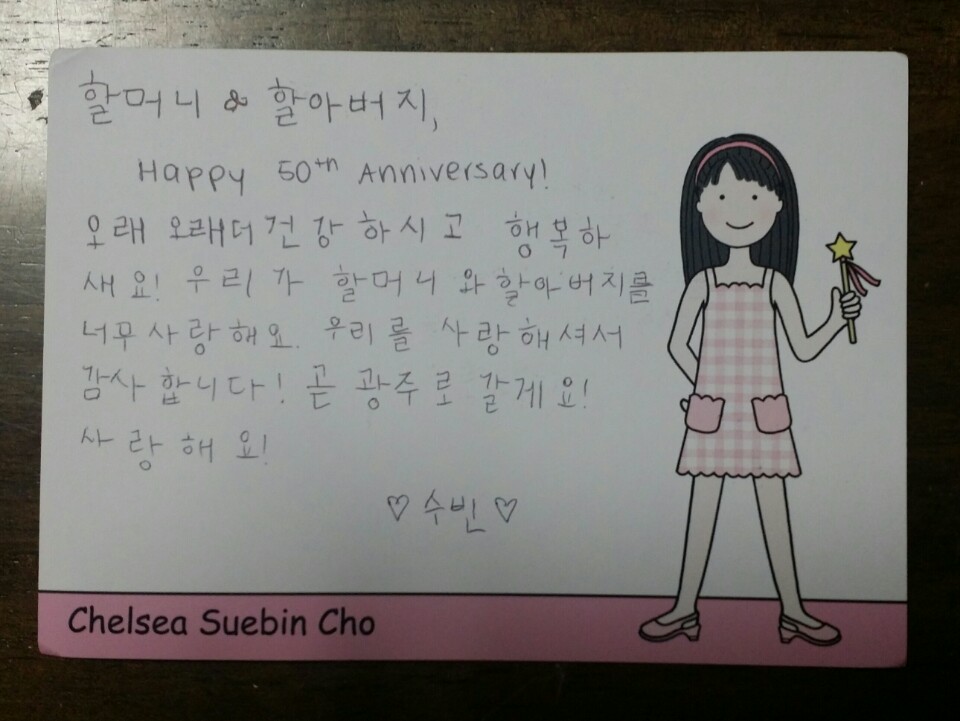 할머니 & 할아버지,
Happy 50th Anniversary!
오래 오래더건강하시고 행복하
새요! 우리가 할머니와할아버지를
너무사랑해요. 우리를 사랑해셔서
감사합니다! 곧 광주로 갈게요!
사랑해요!
♡ 수빈 ♡
Chelsea Suebin Cho